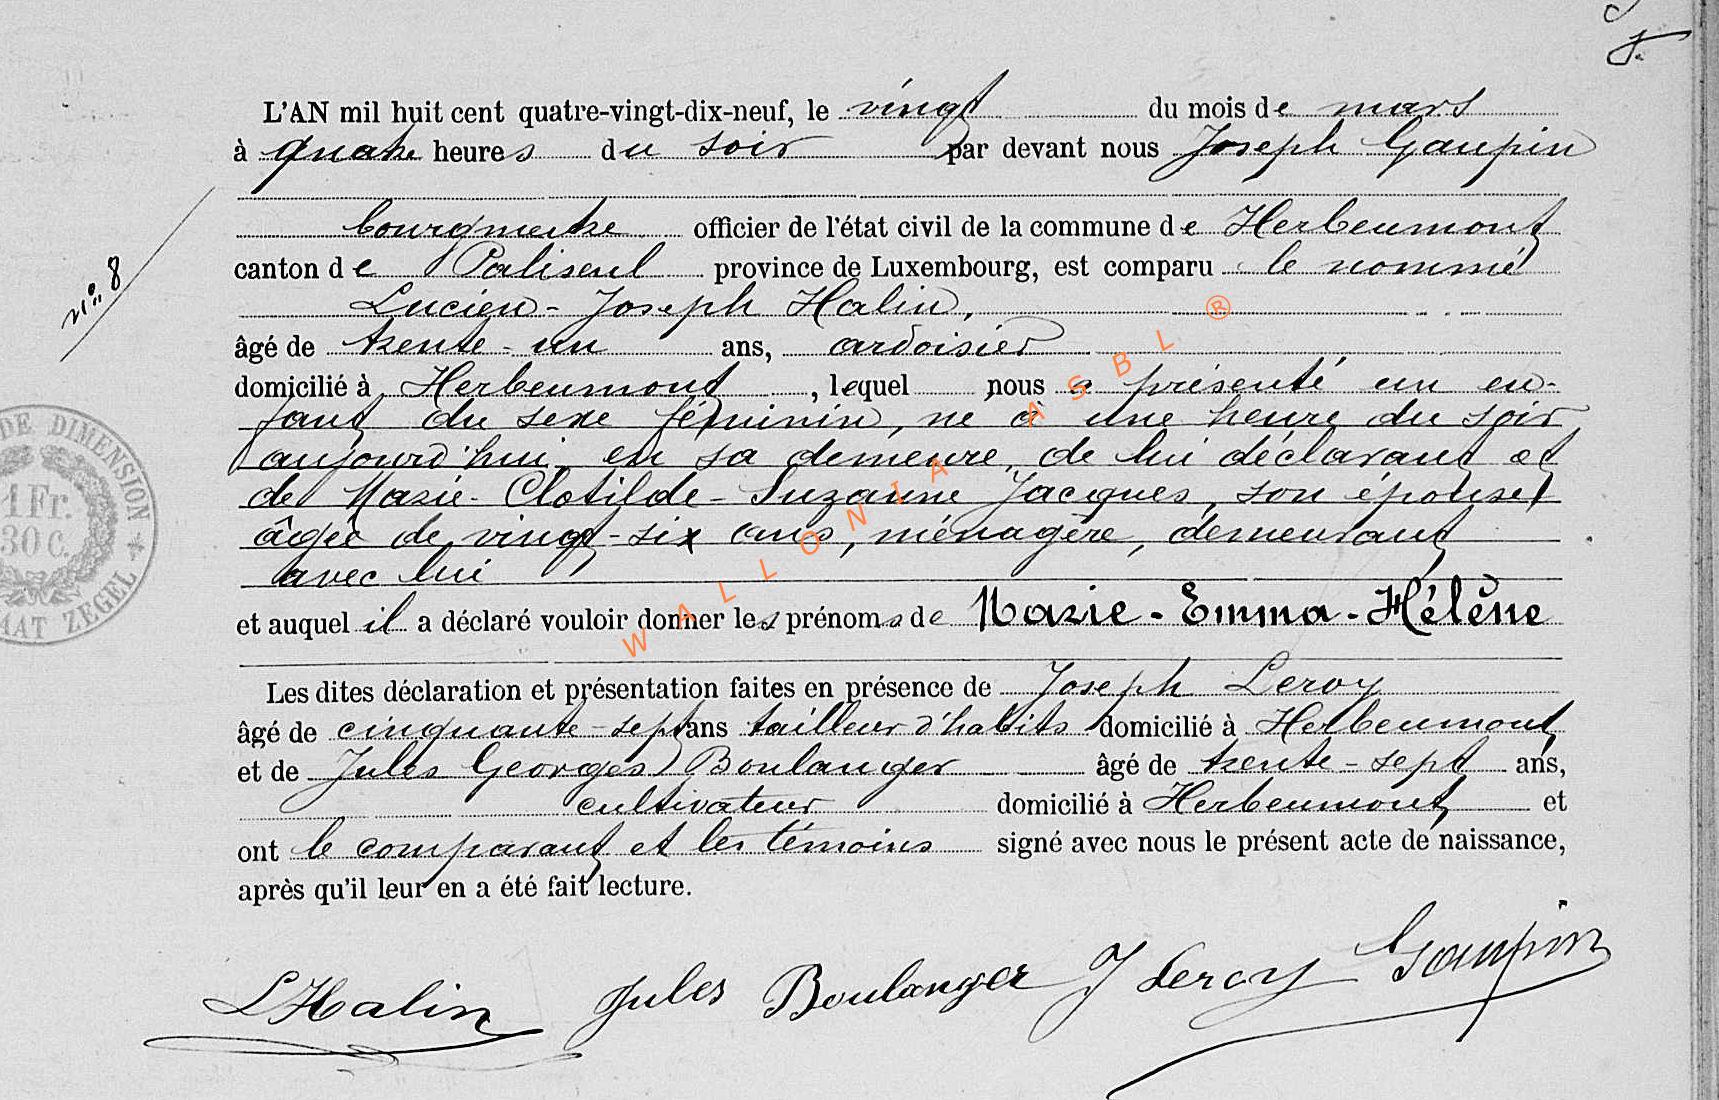 L'AN mil huit cent quatre-vingt-dix-neuf, le vingt du mois de mars
à quatre heures du soir par devant nous Joseph Gaupin
bourgmestre officier de l'état civil de la commune de Herbeumont
canton de Paliseul province de Luxembourg, est comparu le nommé
n° 8
Lucien-Joseph Halin,
âgé de trente-un ans, ardoisier
domicilié à Herbeumont, lequel nous a présenté un en-
fant du sexe féminin, né à une heure du soir
aujourd'hui, en sa demeure, de lui déclarant et
de Marie-Clotilde-Suzanne Jacques, son épouse,
âgée de vingt-six ans, ménagère, demeurant
avec lui
et auquel il a déclaré vouloir donner les prénoms de Marie-Emma-Hélène
Les dites déclaration et présentation faites en présence de Joseph Leroy
âgé de cinquante-sept ans tailleur d'habits domicilié à Herbeumont
et de Jules Georges Boulanger âgé de trente-sept ans,
cultivateur domicilié à Herbeumont et
ont le comparant et les témoins signé avec nous le présent acte de naissance,
après qu'il leur en a été fait lecture.
L Halin Jules Boulanger J Leroy Gaupin
DE DIMENSION
1 Fr.
30 C.
MAAT ZEGEL
WALLONIA ASBL ®